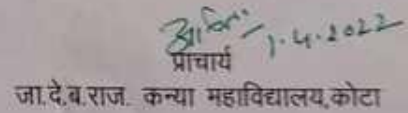 1.4.2022
प्राचार्य
जा.दे.ब.राज. कन्या महाविद्यालय,कोटा